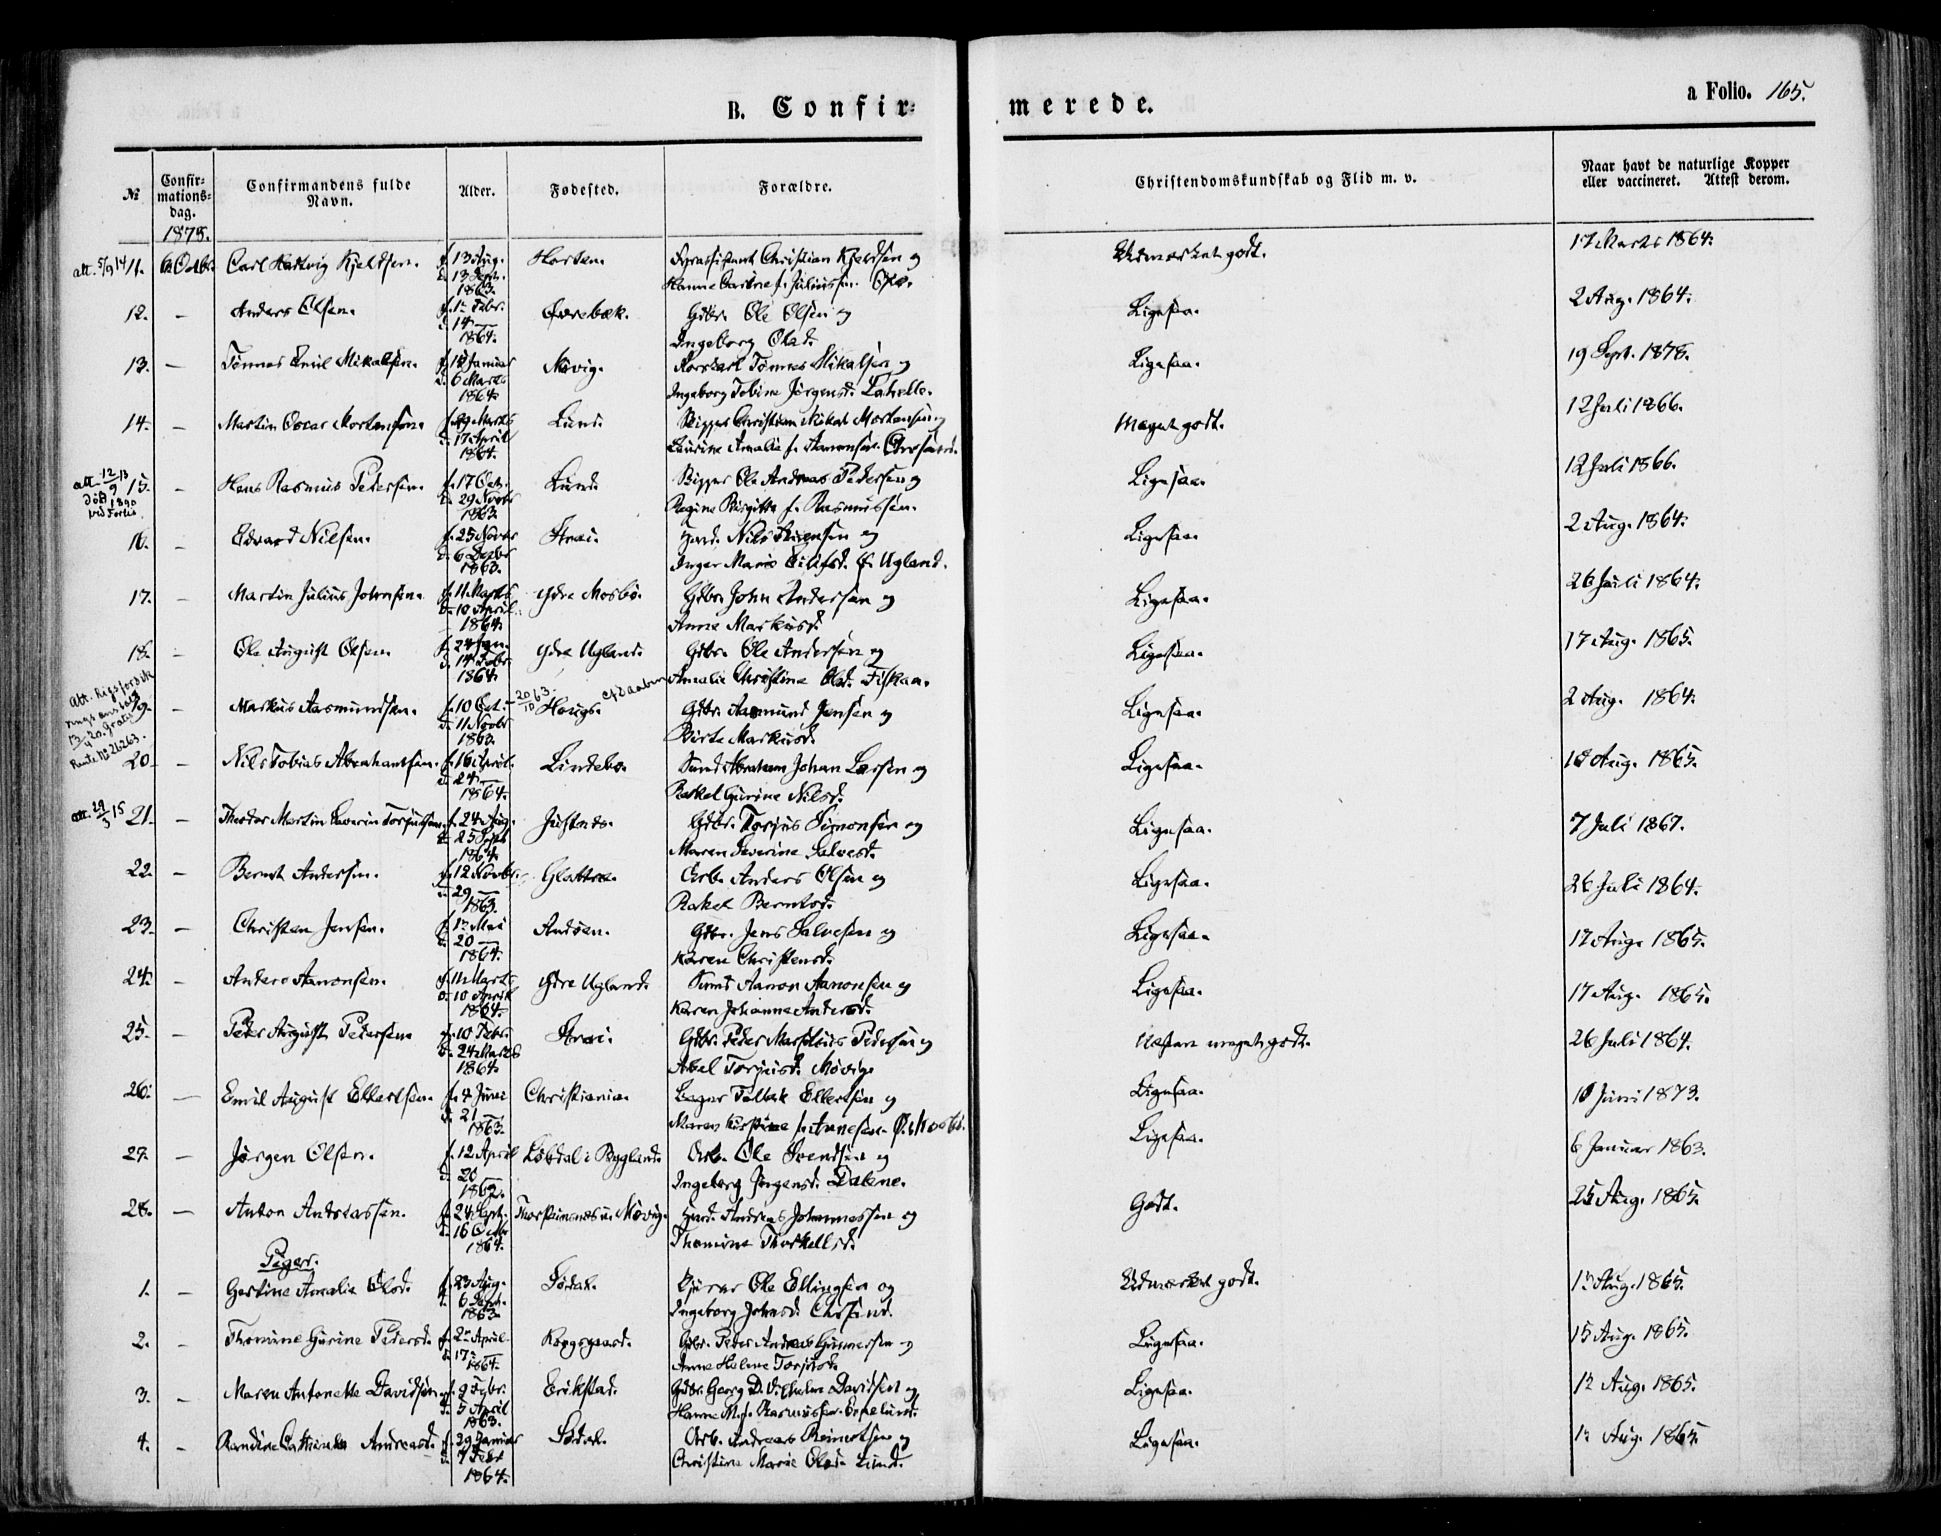 B. Confirmerede.
a Folio. 165.
№
Confir-
mations-
dag.
Confirmandens fulde
Navn.
Alder.
Fødested.
Forældre.
Christendomskundskab og Flid m. v.
Naar havt de naturlige Kopper
eller vaccineret. Attest derom.
1878.
att. 5/9 14 11. 6 Octbr. Carl Hartvig Kjeldsen. f. 13 Aug. Horten. Christian Kjeldsen og Udmærket godt. 17 Marts 1864.
d. 13 Sept. Hanne
1863.
12. – Anders Olsen. f. 1ste Febr. Gdbr. Ole Olsen og Ligesaa. 2 Aug. 1864.
d. 14 — Ingeborg Olsd.
1864.
13. – Tønnes Emil Mikalsen. f. 12 Januar Møvig. Tønnes Mikalsen og Ligesaa. 19 Sept. 1878.
d. 6 Marts Ingeborg Tobine Jørgensd.
1864.
14. – Martin Oscar Mortensen. f. 29 Marts Lund. Skipper Christian Mikal Mortensen og Meget godt. 12 Juli 1866.
d. 17 April Laurine Amalia f. Aanensen. Chrsand.
1864.
att. 12/9 13 15. – Hans Rasmus Pedersen. f. 17 Oct. Lund. Skipper Ole Andreas Pedersen og Ligesaa. 12 Juli 1866.
død 1890
d. 29 Novbr Regine Birgitte f. Rasmussen.
1863.
16. – Edvard Nilsen. f. 25 Novbr Strai. Nils og Ligesaa. 2 Aug. 1864.
d. 6 Decbr Inger Marie Eilifsd. f. Ugland.
1863.
17. – Martin Julius Johnsen. f. 11 Marts Ydre Mosbø. Gdbr. John Andersen og Ligesaa. 26 Juli 1864.
d. 10 April Anne Markusd.
1864.
18. – Ole August Olsen. f. 24 Jan. Ydre Ugland. Gdbr. Ole Andersen og Ligesaa. 17 Aug. 1865.
d. 14 Febr Amalie Christine Olsd. Fiskaa.
1864.
19. – Markus Aasmundsen. f. 10 Oct. 20/10 63. Haugs. Gdbr. Aasmund Jensen og Ligesaa. 2 Aug. 1864.
d. 11 Novbr Birte Markusd.
1863.
20. – Nils Tobias Abrahamsen. f. 16 April. Lindebø. Abraham Johan Larsen og Ligesaa. 18 Aug. 1865.
d. 24 — Rakel Gurine Nilsd.
1864.
att. 29/3 15 21. – Theodor Martin Severin Torjussen. f. 24 Aug. Justnes. Gdbr. Torjus Simonsen og Ligesaa. 7 Juli 1867.
d. 25 Sept Maren Severine Salvesd.
1864.
22. – Bernt Andersen. f. 12 Novbr. Glattre. Arb. Anders Olsen og Ligesaa. 26 Juli 1864.
d. 29 — Rakel Berntsd.
1863.
23. – Christen Jensen. f. 1ste Mai Andøen. Gdbr. Jens Salvesen og Ligesaa. 17 Aug. 1865.
d. 20 — Karen Christensd.
1864.
24. – Anders Aanonsen. f. 11 Marts Ydre Ugland. Aanon Aanonsen og Ligesaa. 17 Aug. 1865.
d. 10 April Karen Johanne Andersd.
1864.
25. – Peder August Pedersen. f. 10 Febr. Strai. Gdbr. Peder Marselius Pedersen og Næsten meget godt. 26 Juli 1864.
d. 24 Marts Abel Torjusd. Møvig.
1864.
26. — Emil August Ellertsen. f. 4 Juni Christiania. Ellertsen og Ligesaa. 10 Juni 1873.
d. 21 — Maren
1863.
27. — Jørgen Olsen. f. 12 April i Bygland. Arb. Ole Svendsen og Ligesaa. 6 Januar 1863.
d. 20 — Ingeborg Jørgensd. Dalene.
1862.
28. — Anton Andreassen. f. 24 Sept. u. Møvig. Andreas Johannessen og Godt. 25 Aug. 1865.
d. 16 Octbr Thomine Thorkellsd.
1864.
Piger.
1. – Gustine Amalie Olsd. f. 23 Aug. Sødal. Ole Ellingsen og Udmærket godt. 12 Aug. 1865.
d. 6 Sept. Ingeborg Johnsd. Chrsand.
1863.
2. – Thomine Gurine Pedersd. f. 2den April Kongsgaard. Gdbr. Peder Andreas Gunnersen og Ligesaa. 15 Aug. 1865.
d. 17 — Anne Helene Torjusd.
1864.
3. – Maren Antonette Davidsen. f. 9 Febr. Erikstad. Gdbr. Georg D. Vilhelm Davidsen og Ligesaa. 12 Aug. 1865.
d. 5 April Hanne M. f. Rasmussen.
1863.
4. – Randine Cathinka Andreasd. f. 29 Januar Sødal. Arb. Andreas Reinertsen og Ligesaa. 12 Aug. 1865.
d. 7 Febr Christine Marie Olsd. Lund.
1864.